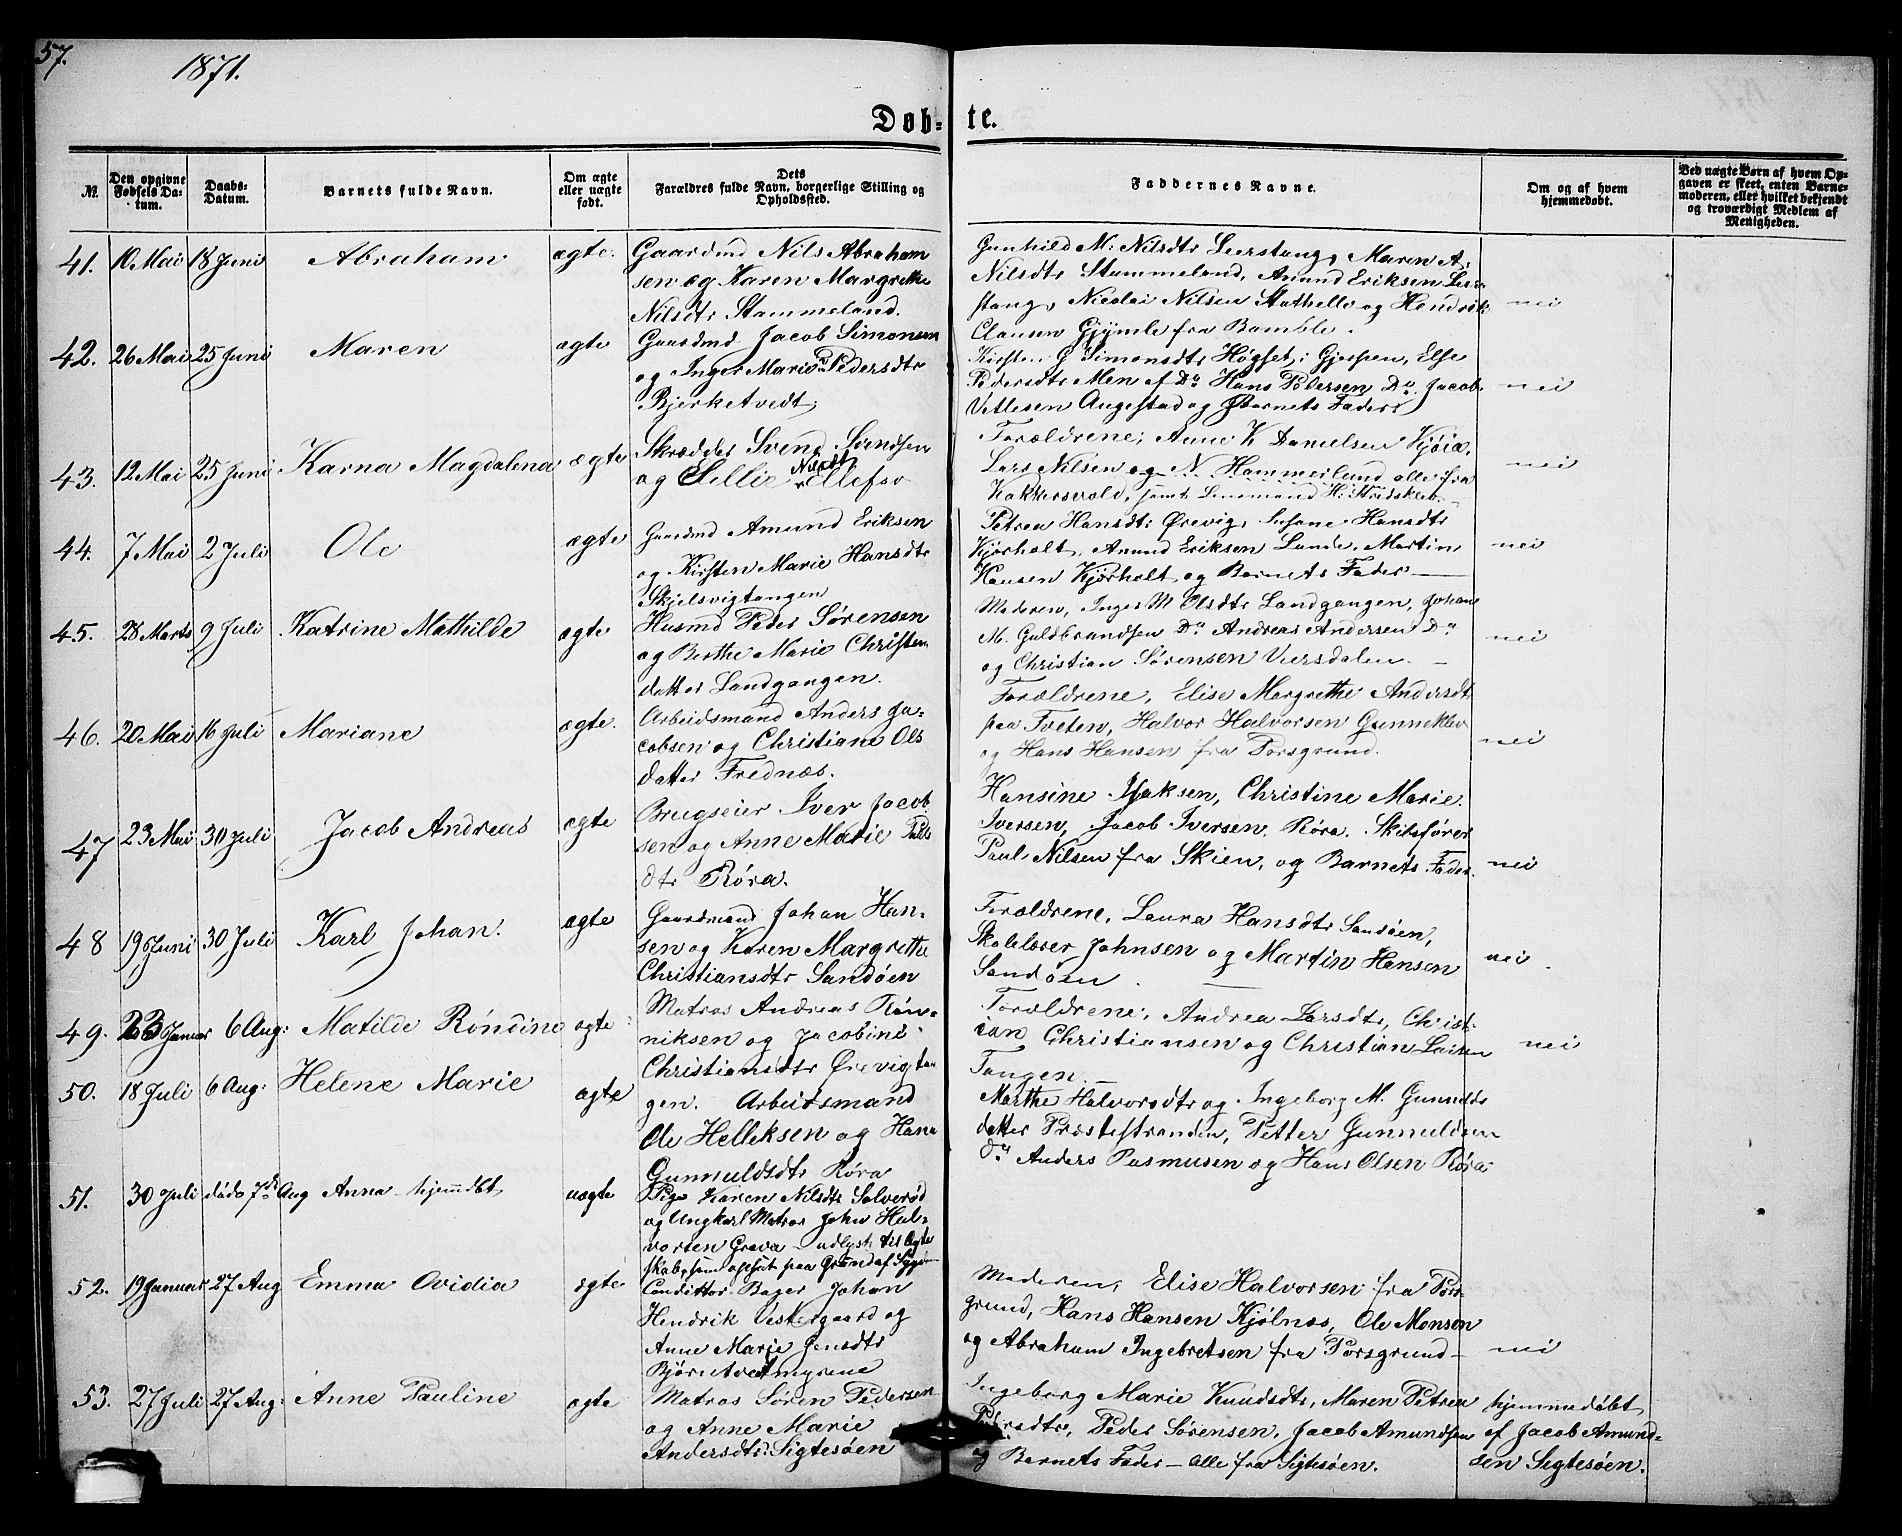 57.
1871.
Døb-te.
№
Den opgivne Fødsels Datum.
Daabs-Datum.
Barnets fulde Navn.
Om ægte eller uægte født.
Dets Forældres fulde Navn, borgerlige Stilling og Opholdssted.
Faddernes Navne.
Om og af hvem hjemmedøbt.
Ved uægte Børn af hvem Opgaven er skeet, enten Barnemoderen, eller hvilket bekjendt og troværdigt Medlem af Menigheden.
41. 10 Mai 18 Juni Abraham ægte.
Gaardmd Nils Abraham
sen og Karen Margrethe
Nilsdtr Stammeland.
Gunhild M. Nilsdtr Leerstang, Maren A.
Nilsdtr Stammeland, Amund Eriksen Leer
stang, Nicolai Nilsen Stathelle og Hendrik
Clausen Gjymle fra Bamble.
nei
42. 26 Mai 25 Juni Maren ægte
Gaardmd Jacob Simonsen
og Inger Marie Pedersdtr
Bjerketvedt.
Kirsten G Simonsdtr Høgset i Gjerpen, Else
Pedersdtr Men af Do Hans Pedersen Do Jacob
Vetlesen Augestad og Barnets Fader
nei
43. 12 Mai 25 Juni Karna Magdalena ægte
Skrædder Svend Svendsen
og Sillie Nilsdt Ellefsv
Forældrene, Anne K Danielsen Kjøia,
Lars Nilsen og N. Hammerlund alle fra
Kokkersvold, samt Lensmand H. Stridsklev
nei
44. 7 Mai 2 Juli Ole ægte
Gaardmd Amund Eriksen
og Kirsten Marie Hansdtr
Skjelsvigtangen
Petrea Hansdtr Ørevig, Susane Hansdtr
Kjørholt, Amund Eriksen Lunde, Martin
Hansen Kjørholt og Barnets Fader
nei
45. 28 Marts 9 Juli Katrine Mathilde ægte
Husmd Peder Sørensen
og Berthe Marie Christen
datter Landgangen.
Moderen, Inger M Olsdtr Landgangen, Johan
M. Guldbrandsen Do Andreas Andersen Do
og Christian Sørensen Versdalen.
nei
46. 20 Mai 16 Juli Mariane ægte.
Arbeidsmand Anders Ja-
cobsen og Christiane Ols
datter Frednæs.
Forældrene, Elise Margrethe Andersdt
paa Tveten, Halvor Halvorsen Gunneklev
og Hans Hansen fra Porsgrund.
nei
47 23 Mai 30 Juli Jacob Andreas ægte
Brugseier Iver Jacob
sen og Anne Marie Pauls
dtr Røra.
Hansine Isaksen, Christine Marie
Iversen, Jacob Iversen Røra. Skibsfører
Paul Nilsen fra Skien, og Barnets Fader
nei
48 19 Juni 30 Juli Karl Johan. ægte
Gaardmand Johan Han-
sen og Karen Margrethe
Christiansdtr Sandøen
Forældrene, Laura Hansdtr Sandøen,
Skolelærer Johnsen og Martin Hansen
Sandøen.
nei.
49. 23 Januar 6 Aug: Matilde Røndine ægte
Matros Andreas Røn-
niksen og Jacobine
Christiansdtr Ørevigtan
gen.
Forældrene, Andrea Larsdtr, Christ-
ian Christiansen og Christian Larsen
Tangen
nei
50. 18 Juli 6 Aug: Helene Marie ægte
Arbeidsmand
Ole Helleksen og Hane
Gunnuldsdtr Røra
Marthe Halvorsdtr og Ingeborg M. Gunnulds
datter Præstestranden, Petter Gunnuldsen
Do Anders Rasmusen og Hans Olsen Røra
51. 30 Juli døds 7de Aug Anna hjemmdbt uægte
Pige Karen Nilsdtr Salverød
og Ungkarl Matros John Hal-
vorsen Grava - udlyst til Ægte
skab, som opsat paa Grund af Sygdom
52. 19 Januar 27 Aug Emma Ovidia ægte
Conditter Bager Johan
Hendrik Vestergaard og
Anne Marie Jensdtr
Bjørntvetmyrene
Moderen, Elise Halvorsen fra Pors
grund, Hans Hansen Kjølnæs, Ole Monsen
og Abraham Ingebretsen fra Porsgrund
nei
53. 27 Juli 27 Aug: Anne Pauline ægte
Matros Søren Pedersen
og Anne Marie
Andersdtr Sigtesøen
Ingeborg Marie Knudsdtr, Maren Petrea
Pedersdtr, Peder Sørensen, Jacob Amundsen
og Barnets Fader - alle fra Sigtesøen.
hjemmedøbt
af Jacob Amund-
sen Sigtesøen.